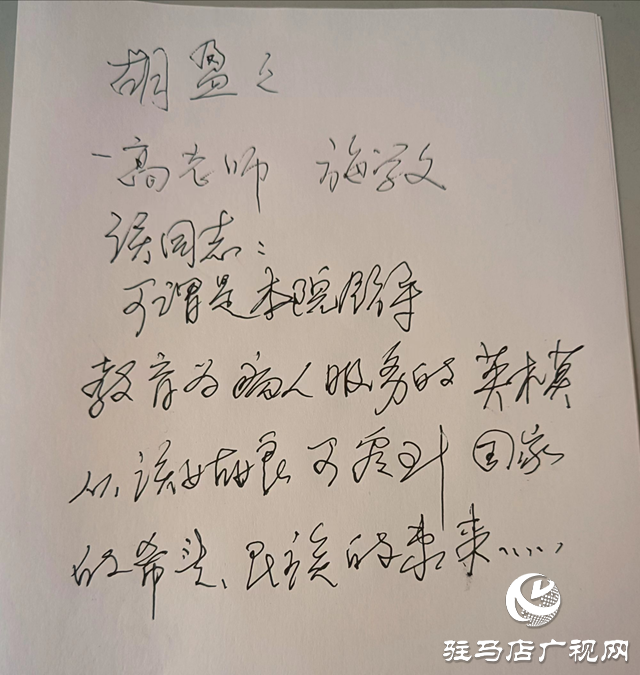 胡盈之
一高老师 施学文
该同志:
可谓是本院
教育为病人服务的英模
从该姑娘可看到国家
的希望、民族的未来……
驻马店广视网